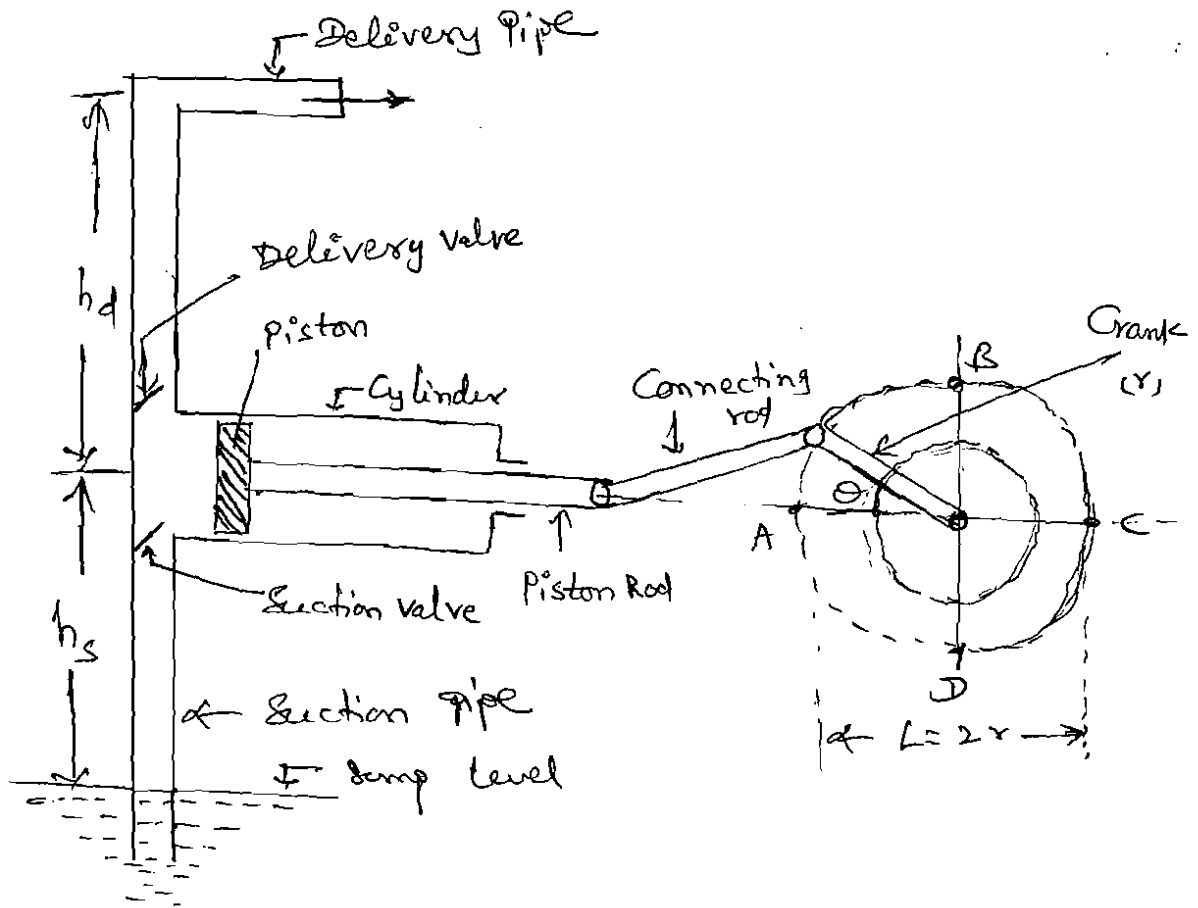 Delivery Pipe
hd
Delivery Valve
Piston
Cylinder
Connecting
rod
Crank
(r)
B
θ
A
C
Piston Rod
Suction Valve
hs
D
Suction pipe
L = 2r
Sump Level